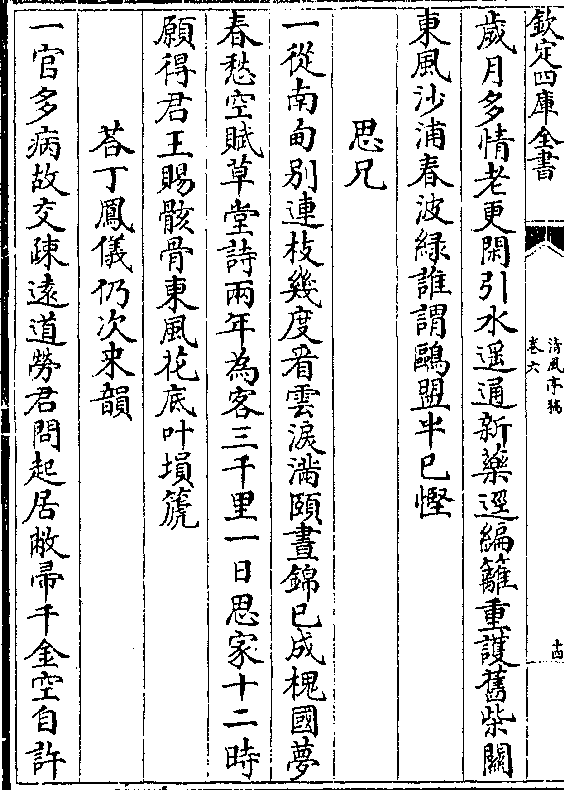 欽定四庫全書
清風亭稿
卷六
十四
歲月多情老更閑引水遥通新藥逕編籬重護舊柴關
東風沙浦春波緑誰謂鷗盟半已慳
思兄
一從南甸别連枝幾度看雲淚滿頤晝錦已成槐國夢
春愁空賦草堂詩兩年為客三千里一日思家十二時
願得君王賜骸骨東風花底叶塤箎
荅丁鳳儀仍次来韻
一官多病故交疎逺道勞君問起居敝帚千金空自許